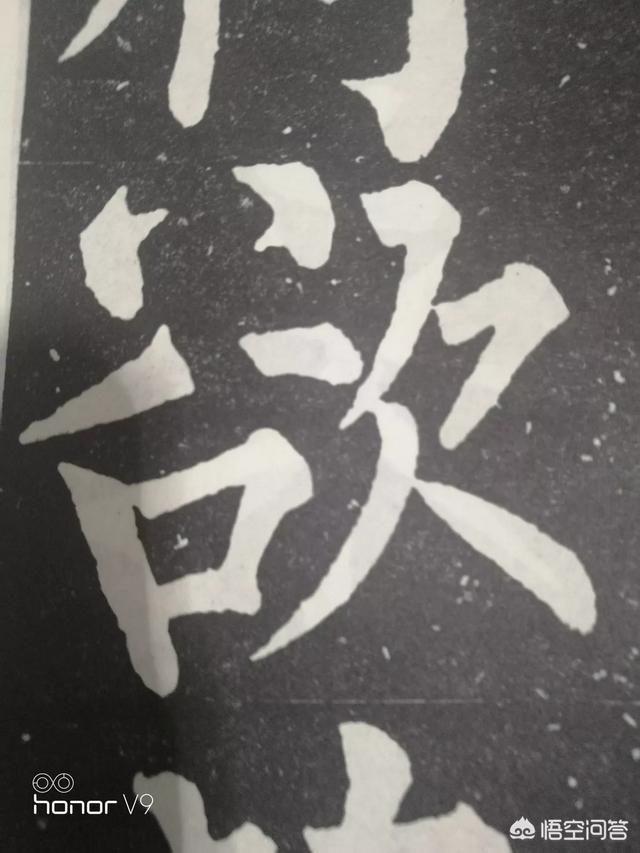 欲
honor V9
悟空问答